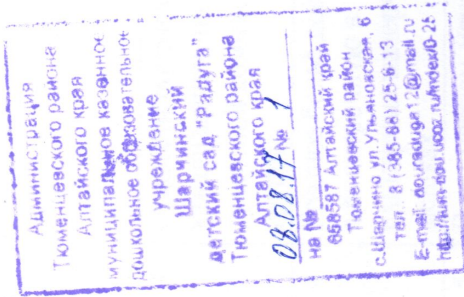 Администрация
Тюменцевского района
Алтайского края
муниципальное казенное
дошкольное образовательное
учреждение
Шарчинский
детский сад "Радуга"
Тюменцевского района
Алтайского края
08.08.17 № 1
на №
658587 Алтайский край
Тюменцевский район
с.Шарчино ул.Ульяновская, 6
тел.: 8 (385-88) 25-6-13
E-mail: